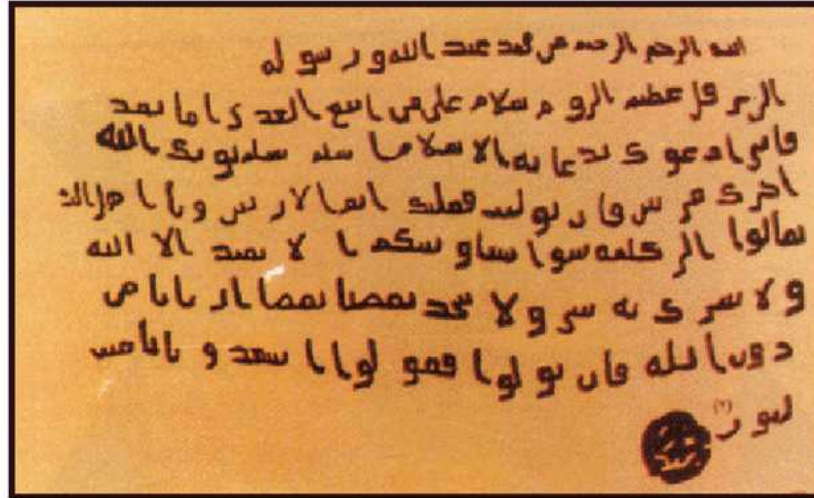 الله الرحمن الرحيم من محمد عبد الله و رسوله
الى هرقل عظيم الروم سلام على من اتبع الهدى اما بعد
فاني ادعوك بدعاية الاسلام اسلم تسلم يؤتك الله
اجرك مرتين فان توليت فعليك اثم الاريسين ويا اهل
تعالوا الى كلمة سوا بيننا وبينكم الا نعبد الا الله
ولا نشرك به شيا ولا يتخذ بعضنا بعضا اربابا من
دون الله فان تولوا فقولوا اشهدوا بانا مسـ
لمون (٢)